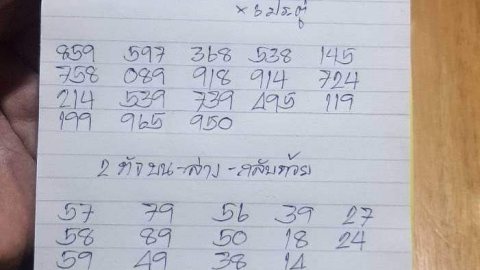 × 6 ประตู
859 597 368 538 145
758 089 918 914 724
214 539 739 495 119
199 965 950
2 ตัวบน-ล่าง-กลับด้วย
57 79 56 39 27
58 89 50 18 24
59 49 38 14